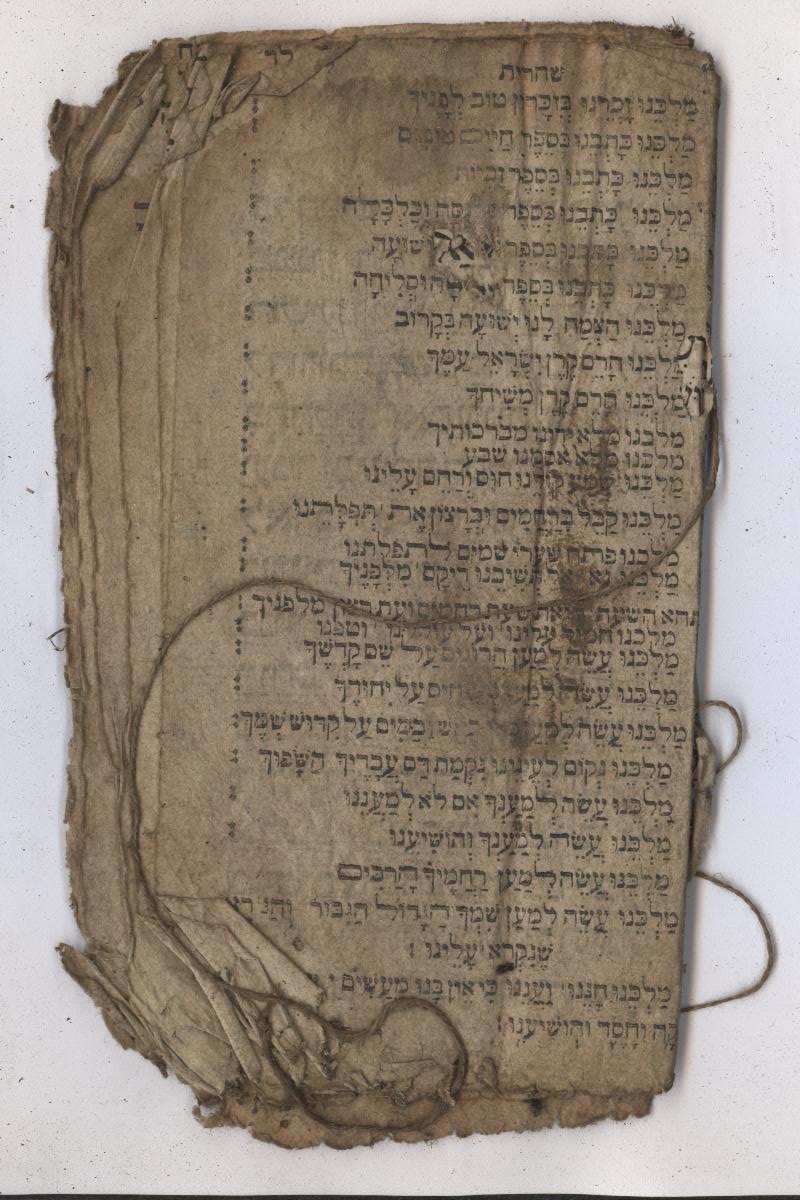 לך
שחרית
מַלְכֵּנוּ זָכְרֵנוּ בְּזִכָּרוֹן טוֹב לְפָנֶיךָ
מַלְכֵּנוּ כָּתְבֵנוּ בְּסֵפֶר חַיִּים טוֹבִים
מַלְכֵּנוּ כָּתְבֵנוּ בְּסֵפֶר זכיות
מַלְכֵּנוּ כָּתְבֵנוּ בְּסֵפֶר וְכַלְכָּלָה
מַלְכֵּנוּ כָּתְבֵנוּ בְּסֵפֶר
מַלְכֵּנוּ כָּתְבֵנוּ בְּסֵפֶר וּסְלִיחָה
מַלְכֵּנוּ הַצְמַח לָנוּ יְשׁוּעָה בְּקָרוֹב
מַלְכֵּנוּ הָרֵם קֶרֶן יִשְׂרָאֵל עַמֶּךָ
מַלְכֵּנוּ הָרֵם קֶרֶן מְשִׁיחֶךָ
מַלְכֵּנוּ מַלֵּא יָדֵינוּ מִבִּרְכוֹתֶיךָ
מלכנו מלא אסמנו שבע
מַלְכֵּנוּ קוֹלֵנוּ חוּס וְרַחֵם עָלֵינוּ
מַלְכֵּנוּ קַבֵּל בְּרַחֲמִים וּבְרָצוֹן אֶת תְּפִלָּתֵנוּ
מלכנו פתח שערי שמים לתפלתנו
מַלְכֵּנוּ נָא אַל תְּשִׁיבֵנוּ רֵיקָם מִלְּפָנֶיךָ
תהא השעה הזאת שעת רחמים ועת רצון מלפניך
מלכנו חמול עלינו ועל עוללנו וטפנו
מַלְכֵּנוּ עֲשֵׂה לְמַעַן הֲרוּגִים עַל שֵׁם קָדְשֶׁךָ
מַלְכֵּנוּ עֲשֵׂה לְמַעַן עַל יִחוּדֶךָ
מַלְכֵּנוּ עֲשֵׂה לְמַעַן וּבַמַּיִם עַל קִדּוּשׁ שְׁמֶךָ
מַלְכֵּנוּ נְקוֹם לְעֵינֵינוּ נִקְמַת דַּם עֲבָדֶיךָ הַשָּׁפוּךְ
מַלְכֵּנוּ עֲשֵׂה לְמַעַנְךָ אִם לֹא לְמַעֲנֵנוּ
מַלְכֵּנוּ עֲשֵׂה לְמַעַנְךָ וְהוֹשִׁיעֵנוּ
מַלְכֵּנוּ עֲשֵׂה לְמַעַן רַחֲמֶיךָ הָרַבִּים
מַלְכֵּנוּ עֲשֵׂה לְמַעַן שִׁמְךָ הַגָּדוֹל הַגִּבּוֹר
שֶׁנִּקְרָא עָלֵינוּ:
מַלְכֵּנוּ חָנֵּנוּ וַעֲנֵנוּ כִּי אֵין בָּנוּ מַעֲשִׂים
וָחֶסֶד וְהוֹשִׁיעֵנוּ: